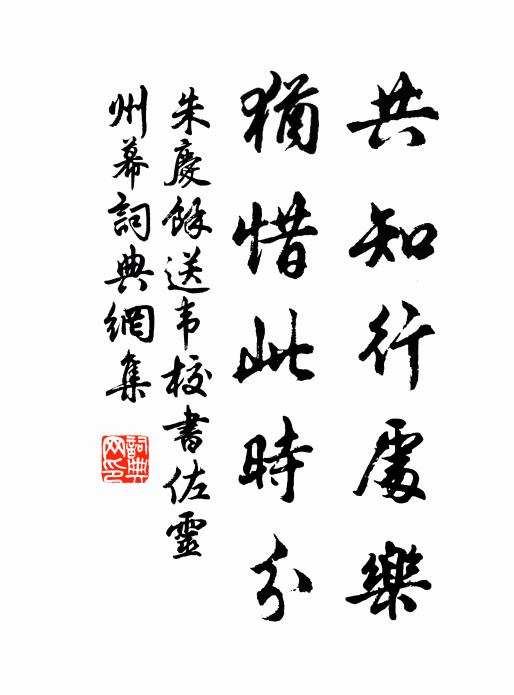 共知行處樂
猶惜此時分
朱慶餘送韦校書佐靈
州幕詞典網集
詞典網印